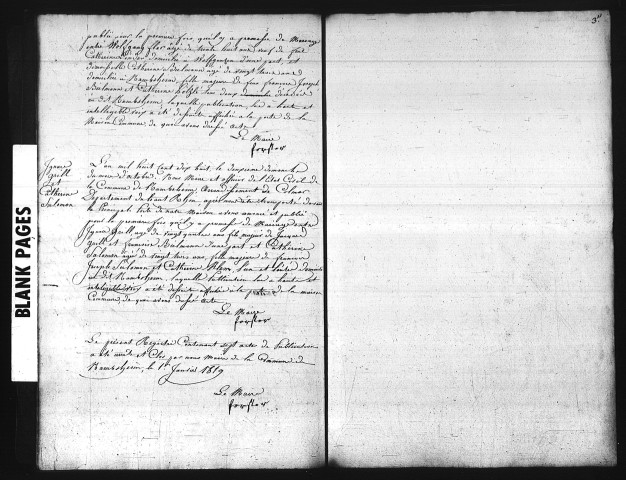 3
publié pour la premiere fois, qu'il y a promesse de Mariage
entre Wolfgang agé de trente huit ans veuf de feu
Catherine domicilié à Wolfgantzen d'une part, et
demoiselle Catherine agé de vingt trois ans
domicilié à Rumbsheim, fille majeure de feu francois Joseph
et Catherine tous deux domicilié
au dit Rumbsheim, laquelle publication, lue à haute et
intelligible voix a été de suite affichée à la porte de la
Maison Commune, de quoi avons dressé acte
Le Maire
forster
Ignace
Guill
et
Catherine
Salomon
L'an mil huit Cent dix huit le deuxieme dimanche
du mois d'octobre Nous Maire et officier de l'Etat Civil de
la Commune de Rumbsheim, arrondissement de Colmar
Departement du haut Rhin, après nous être transporté devant
la Principale Porte de notre Maison avons annoncé et publié
pour la premiere fois qu'il y a promesse de Mariage entre
Ignace Guill agé de vingt quatre ans fils majeur de Jacques
Guill et d'une part et Catherine
Salomon agé de vingt trois ans, fille majeure de francois
Joseph Salomon et Catherine
au dit Rumbsheim, laquelle Publication lue à haute et
intelligible voix a été de suite affichée à la porte de la maison
Commune, de quoi avons dressé acte
Le Maire
forster
Le présent Registre Contenant sept actes de Publication
a été arrêté et Clos par nous Maire de la Commune de
Rumbsheim, le 1er Janvier 1819
Le Maire
forster
BLANK PAGES